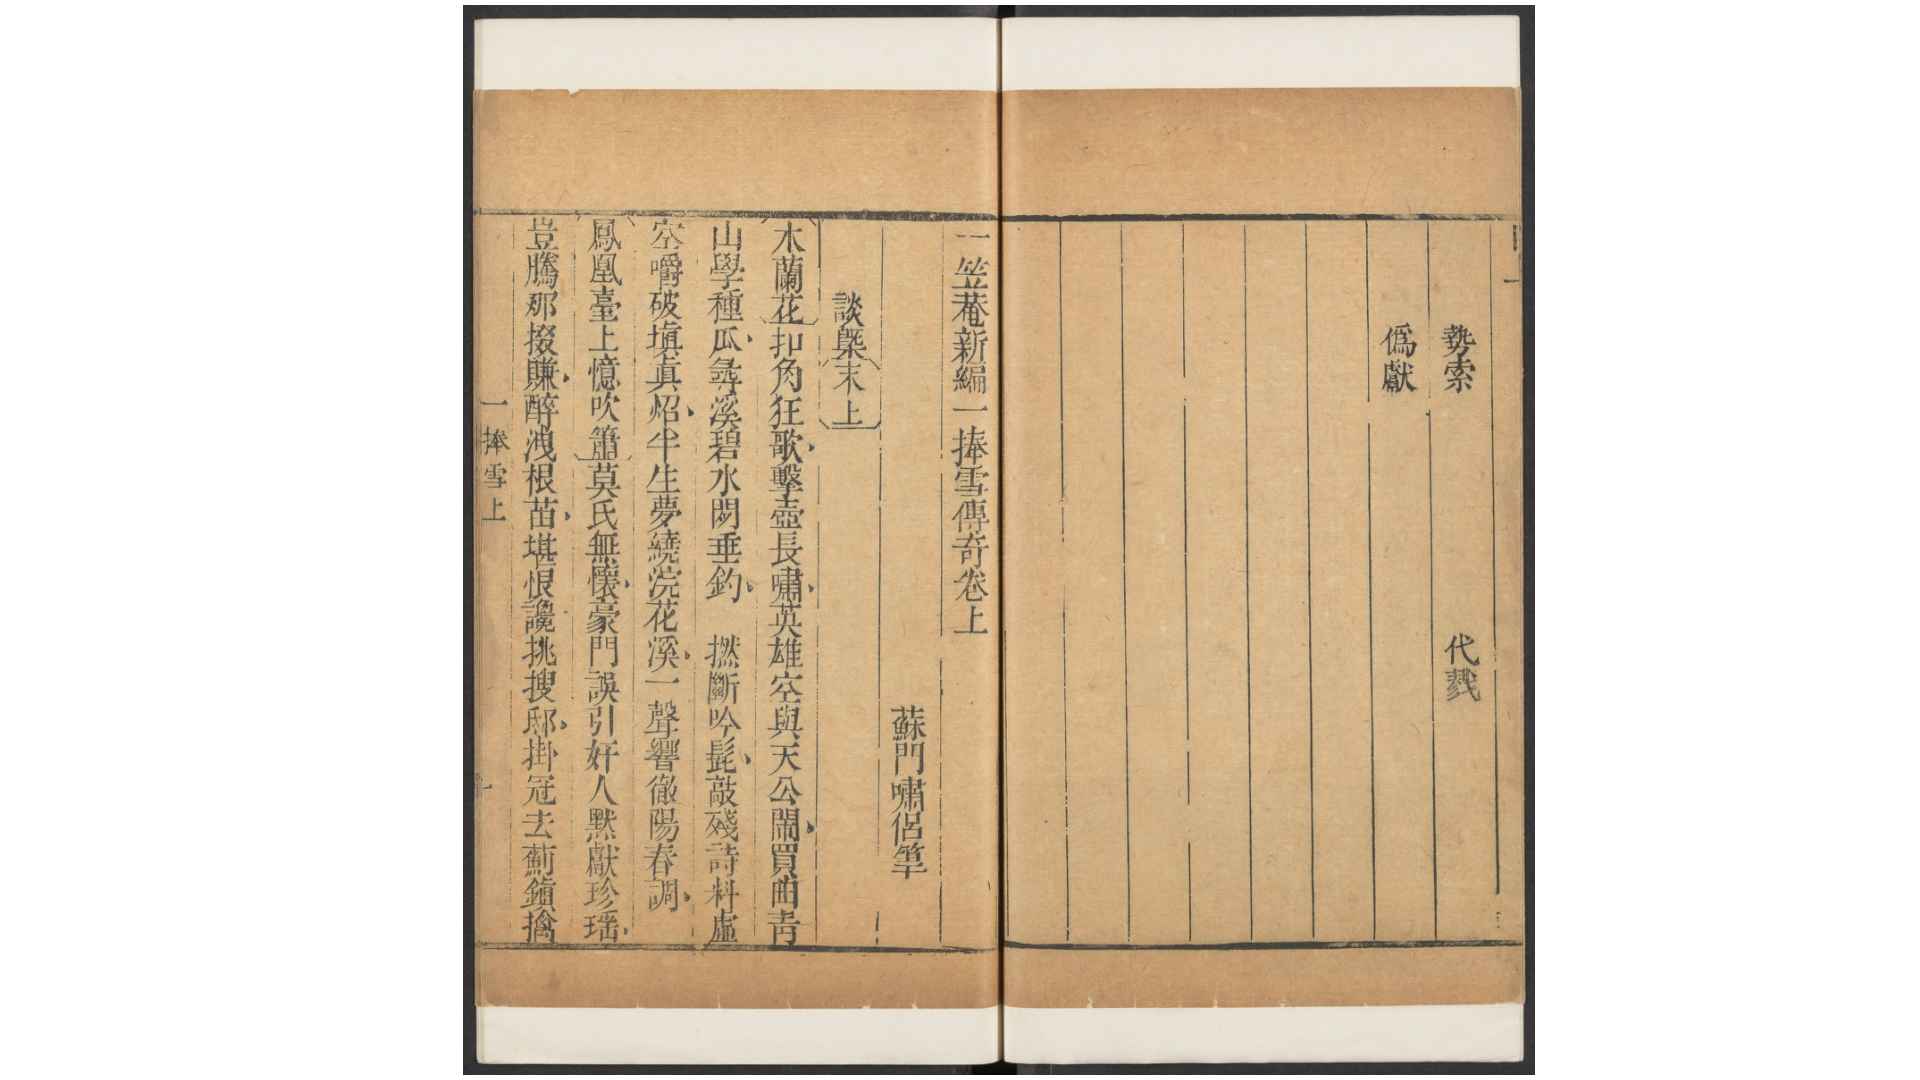 勢索　代戮
僞獻
一笠菴新編一捧雪傳奇卷上
蘇門嘯侶筆
談槩末上
木蘭花扣角狂歌擊壺長嘯英雄空與天公鬧買曲靑
山學種瓜尋溪碧水閒垂釣　撚斷吟髭敲殘詩料虛
空嚼破塤眞炤半生夢繞浣花溪一聲響徹陽春調
鳳凰臺上憶吹簫莫氏無懷豪門誤引奸人默獻珍瑶
豈騰那掇賺醉洩根苗堪恨讒挑搜邸掛冠去薊鎮擒
一捧雪上
一